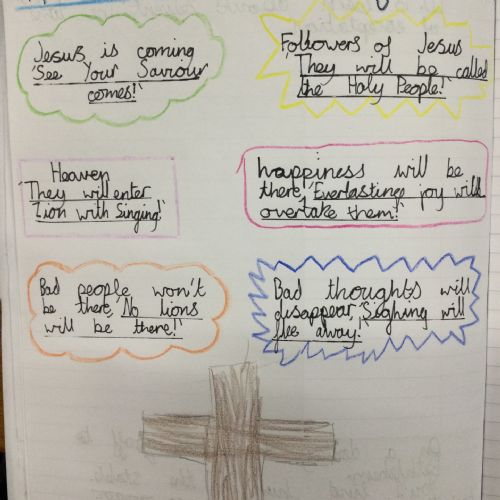 Jesus is coming
'See Your Saviour
comes!'
Followers of Jesus
'They will be called
the Holy People!'
Heaven
'They will enter
Zion with Singing!'
happiness will be
there, 'Everlasting joy will
overtake them!'
Bad people won't
be there, 'No lions
will be there!'
Bad thoughts will
disappear, 'Sighing will
flee away.'